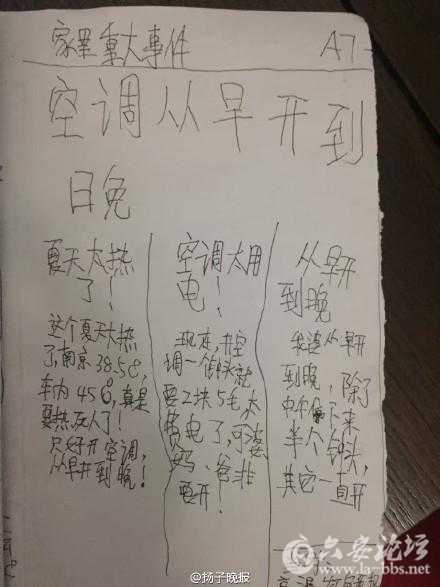 家里重大事件 A7
空调从早开到
晚
夏天太热
了！
这个夏天太热
了,南京38.5℃,
车内45℃,真是
要热死人了!
只好开空调,
从早开到晚!
空调太用
电！
现在,开空
调一个钟头就
要2块5毛,太
费电了,可婆
妈、爸非
要开！
从早开
到晚
我婆从早开
到晚,除了
中午停下来
半个钟头,
其它一直开
@扬子晚报
六安论坛
www.la-bbs.net